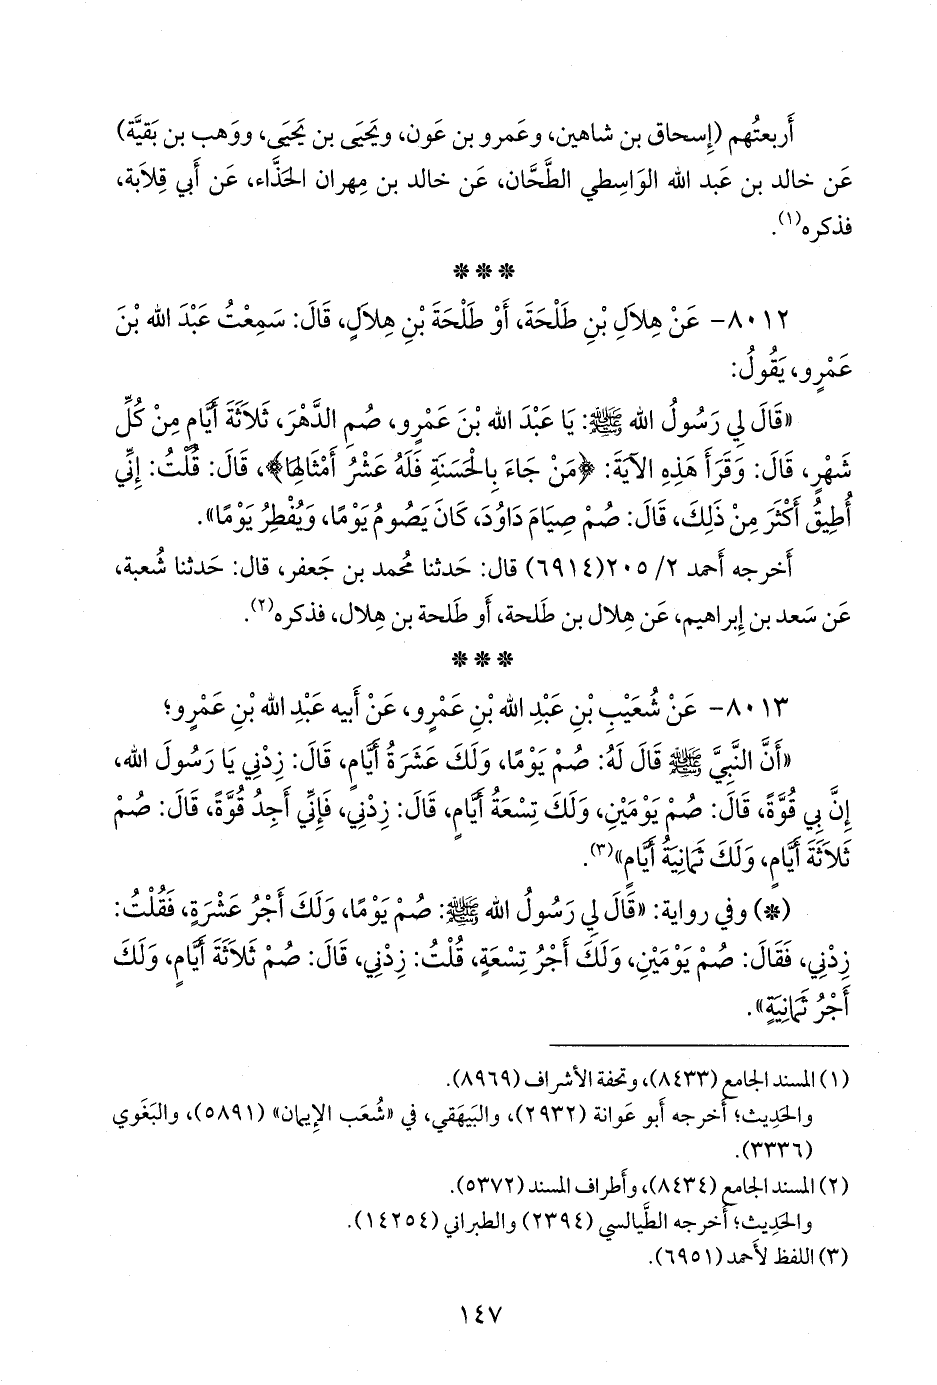 أَربعتُهم (إِسحاق بن شاهين، وعَمرو بن عَون، ويَحيَى بن يَحيَى، ووَهب بن بَقيَّة)
عَن خالد بن عَبد الله الوَاسِطي الطَّحَّان، عَن خالد بن مِهران الحَذَّاء، عَن أَبي قِلاَبة،
فذكره(١).
***
٨٠١٢- عَنْ هِلاَلِ بْنِ طَلْحَةَ، أَوْ طَلْحَةَ بْنِ هِلاَلٍ، قَالَ: سَمِعْتُ عَبْدَ الله بْنَ
عَمْرٍو، يَقُولُ:
«قَالَ لِي رَسُولُ الله ﷺ: يَا عَبْدَ الله بْنَ عَمْرٍو، صُمِ الدَّهْرَ، ثَلاَثَةَ أَيَّامٍ مِنْ كُلِّ
شَهْرٍ، قَالَ: وَقَرَأَ هَذِهِ الآيَةَ: ﴿مَنْ جَاءَ بِالْحَسَنَةِ فَلَهُ عَشْرُ أَمْثَالِهَا﴾، قَالَ: قُلْتُ: إِنِّي
أُطِيقُ أَكْثَرَ مِنْ ذَلِكَ، قَالَ: صُمْ صِيَامَ دَاوُدَ، كَانَ يَصُومُ يَوْمًا، وَيُفْطِرُ يَوْمًا».
أَخرجه أَحمد ٢/ ٢٠٥(٦٩١٤) قال: حَدثنا مُحمد بن جَعفر، قال: حَدثنا شُعبة،
عَن سَعد بن إِبراهيم، عَن هِلال بن طَلحة، أَو طَلحة بن هِلال، فذكره(٢).
***
٨٠١٣- عَنْ شُعَيْبِ بْنِ عَبْدِ الله بْنِ عَمْرٍو، عَنْ أَبيه عَبْدِ الله بْنِ عَمْرٍو؛
«أَنَّ النَّبِيَّ ﷺ قَالَ لَهُ: صُمْ يَوْمًا، وَلَكَ عَشَرَةُ أَيَّامٍ، قَالَ: زِدْنِي يَا رَسُولَ الله،
إِنَّ بِي قُوَّةً، قَالَ: صُمْ يَوْمَيْنِ، وَلَكَ تِسْعَةُ أَيَّامٍ، قَالَ: زِدْنِي، فَإِنِّي أَجِدُ قُوَّةً، قَالَ: صُمْ
ثَلاَثَةَ أَيَّامٍ، وَلَكَ ثَمَانِيَةُ أَيَّامٍ»(٣).
(*) وفي رواية: «قَالَ لِي رَسُولُ الله ﷺ: صُمْ يَوْمًا، وَلَكَ أَجْرُ عَشْرَةٍ، فَقُلْتُ:
زِدْنِي، فَقَالَ: صُمْ يَوْمَيْنِ، وَلَكَ أَجْرُ تِسْعَةٍ، قُلْتُ: زِدْنِي، قَالَ: صُمْ ثَلاَثَةَ أَيَّامٍ، وَلَكَ
أَجْرُ ثَمَانِيَةٍ».
(١) المسند الجامع (٨٤٣٣)، وتحفة الأشراف (٨٩٦٩).
والحَدِيث؛ أَخرجه أَبو عَوانة (٢٩٣٢)، والبَيهَقي، في «شُعَب الإِيمان» (٥٨٩١)، والبَغَوي
(٣٣٣٦).
(٢) المسند الجامع (٨٤٣٤)، وأَطراف المسند (٥٣٧٢).
والحَدِيث؛ أَخرجه الطَّيالسي (٢٣٩٤) والطبراني (١٤٢٥٤).
(٣) اللفظ لأَحمد (٦٩٥١).
١٤٧